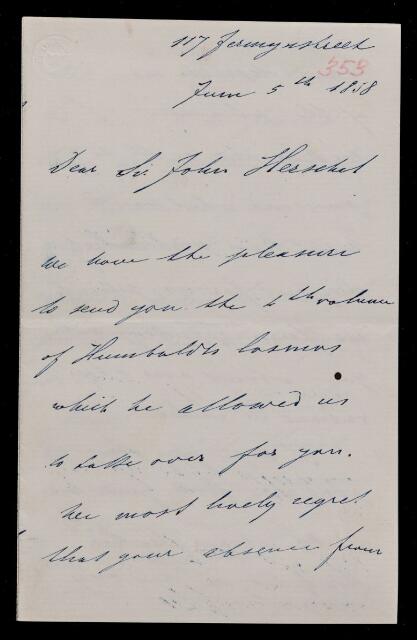 117 Jermynstreet
353
June 5th 1858
Dear Sir John Herschel
we have the pleasure
to send you the 4th volume
of Humboldts Cosmos
which he allowed us
to take over for you.
We most lively regret
that your absence from